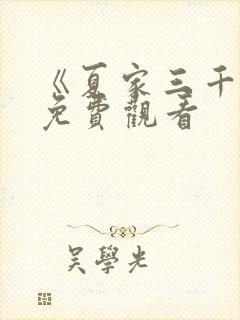 《夏家三千
免費觀看
吳學光